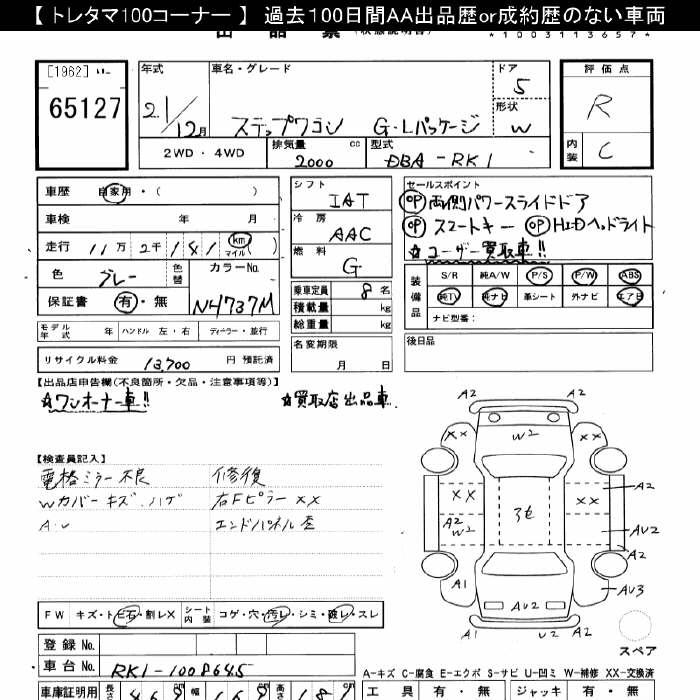 【 トレタマ100コーナー 】 過去100日間AA出品歴or成約歴のない車両
*1003113657*
[1962] い-
65127
年式
21/12月
車名・グレード
ステップワゴン G・Lパッケージ
ドア
5
形状
W
評価点
R
内装
C
2WD・4WD
排気量 2000 cc
型式 DBA-RK1
車歴 自家用・( )
車検 年 月
走行 11万2千181 km マイル
色 グレー 色替
カラーNo.
N4737M
保証書 有・無
モデル年式 年 ハンドル 左・右 ディーラー・並行
リサイクル料金 13,700 円 預託済
シフト
IAT
冷房
AAC
燃料
G
乗車定員 8 名
積載量 kg
総重量 kg
名変期限
月 日
セールスポイント
OP 両側パワースライドドア
OP スマートキー OP HIDヘッドライト
☆ユーザー買取車!!
装備品
S/R 純A/W P/S P/W ABS
純TV 純ナビ 革シート 外ナビ エアB
ナビ型番:
後日品
【出品店申告欄(不良箇所・欠品・注意事項等)】
☆ワンオーナー車!! ☆買取店出品車.
【検査員記入】
電格ミラー不良 修復
Wカバーキズ、ハゲ 右Fピラー XX
A・U エンドパネル歪
FW キズ・トビ石・割レX シート内装 コゲ・穴・汚レ・シミ・破レ・スレ
登録 No.
車台 No. RK1-1008645
車庫証明用 長さ 469 幅 169 高さ 181
A2 A2
XX W2 XX
XX XX A2
A2 W2
AU2
A2
A1 AU2 AU3
A1 U2 A2
スペア
A-キズ C-腐食 E-エクボ S-サビ U-凹ミ W-補修 XX-交換済
工具 有・無 ジャッキ 有・無